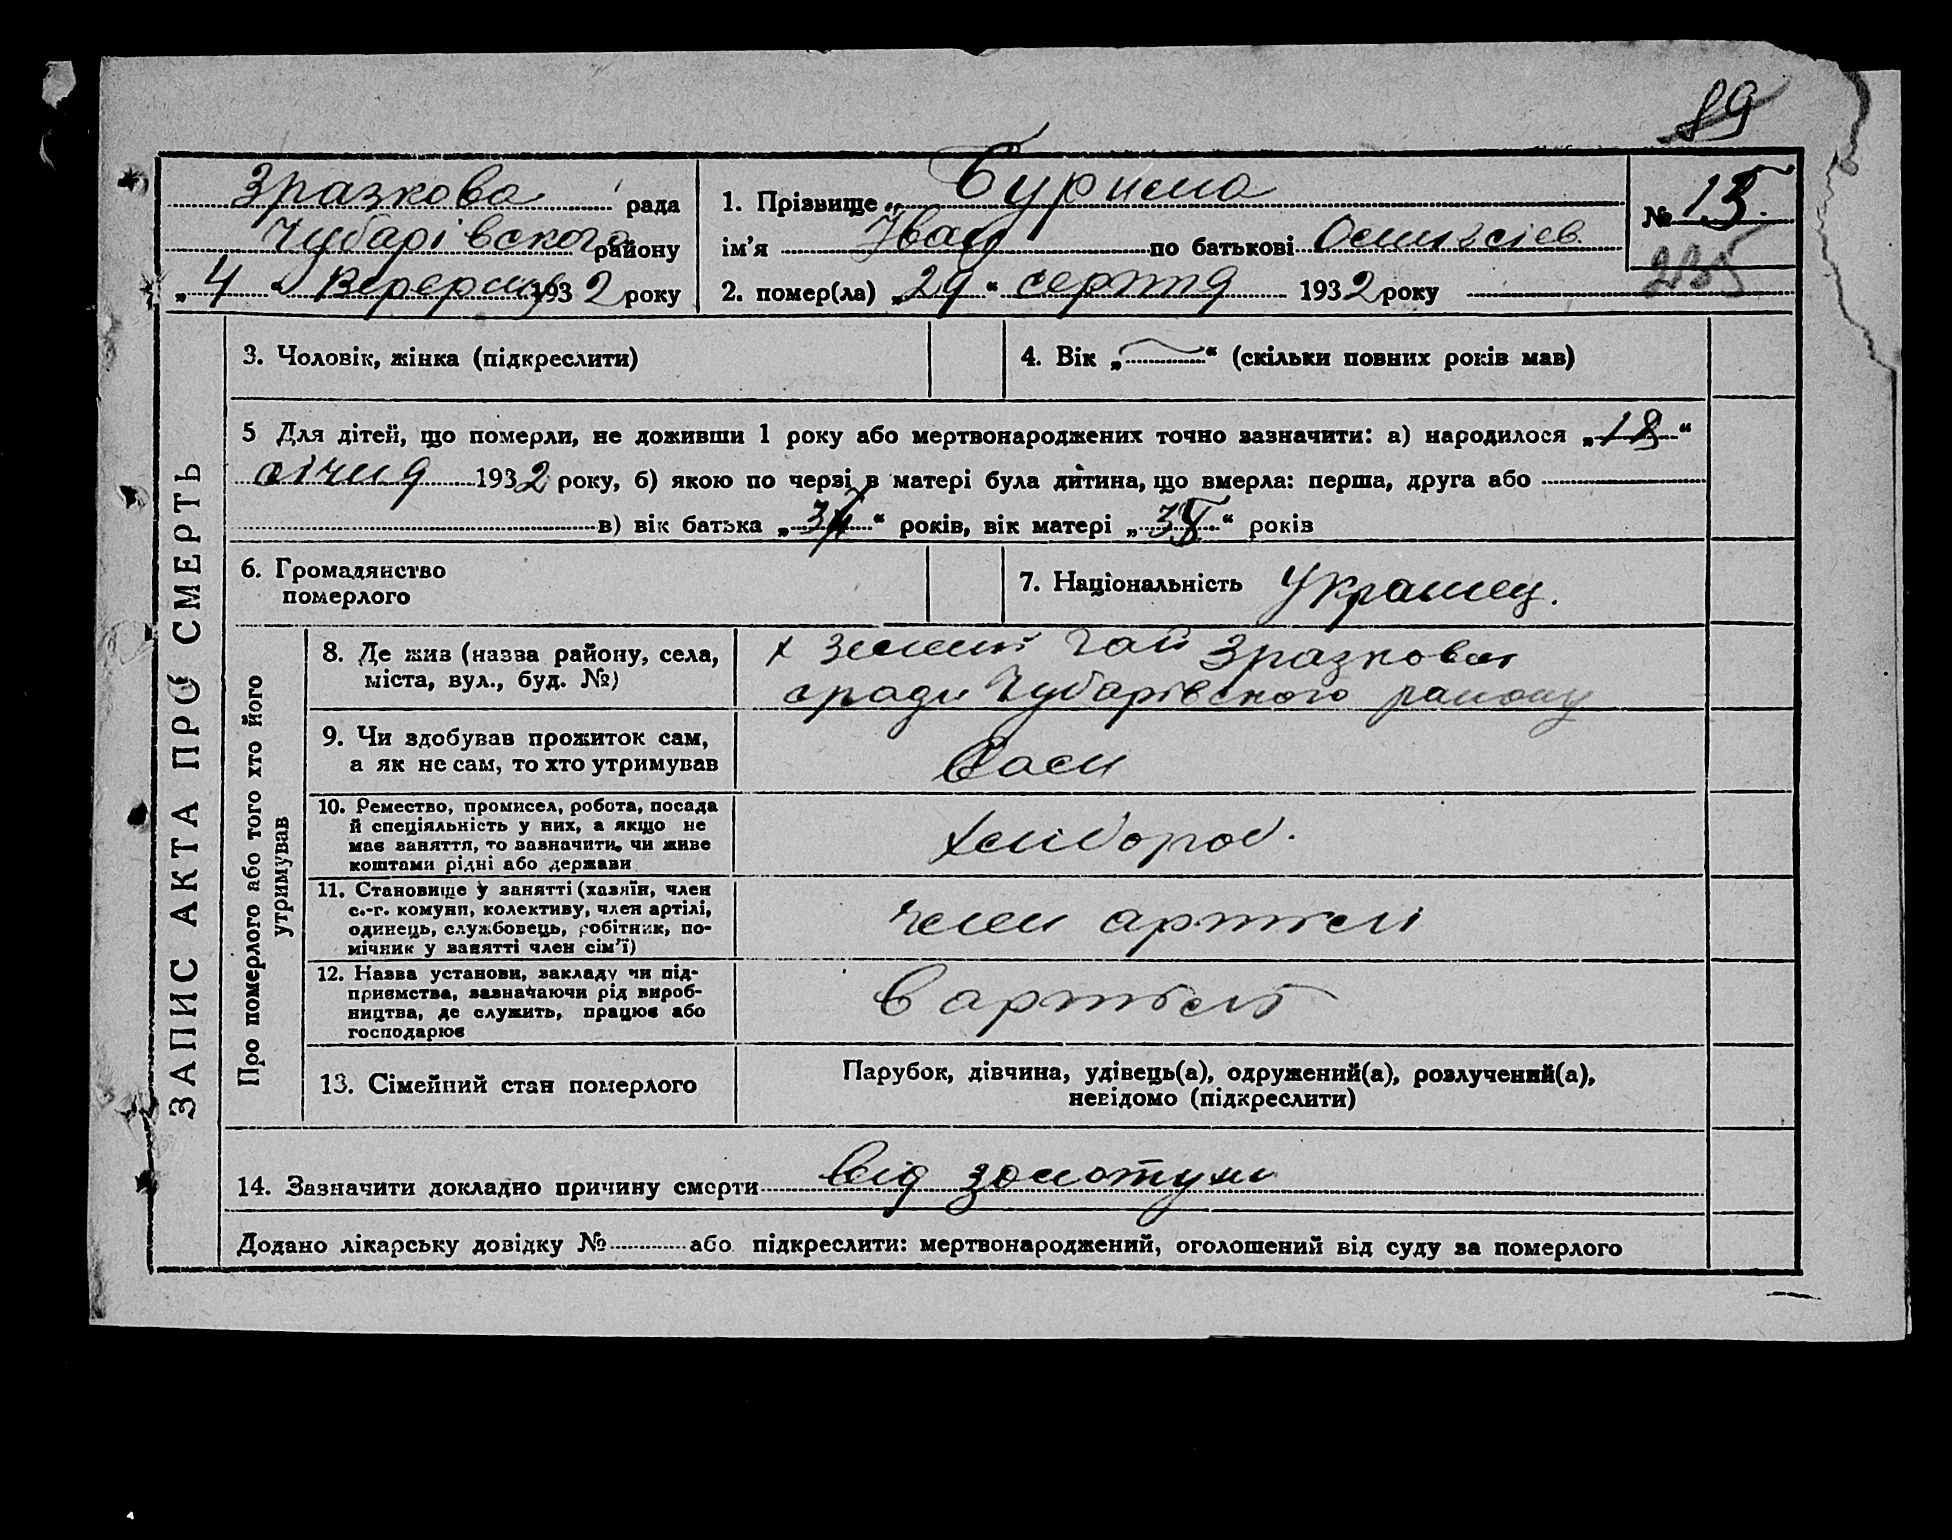 89
Зразкова рада
Чубарівського району
„ 4 “ Вересня 1932 року
1. Прізвище
ім’я Іван по батькові
2. помер(ла) „ 29 “ серпня 1932 року
№ 15.
235
ЗАПИС АКТА ПРО СМЕРТЬ
3. Чоловік, жінка (підкреслити)
4. Вік „ “ (скільки повних років мав)
5 Для дітей, що померли, не доживши 1 року або мертвонароджених точно зазначити: а) народилося „ “
січня 1932 року, б) якою по черзі в матері була дитина, що вмерла: перша, друга або
в) вік батька „ “ років, вік матері „ “ років
6. Громадянство
померлого
7. Національність Украінец.
Про померлого або того хто його
утримував
8. Де жив (назва району, села,
міста, вул., буд. №)
х гай Зразкової
сради Чубарівського району
9. Чи здобував прожиток сам,
а як не сам, то хто утримував
10. Ремество, промисел, робота, посада
й спеціяльність у них, а якщо не
має заняття, то зазначити, чи живе
коштами рідні або держави
Хлібороб.
11. Становище у занятті (хазяїн, член
с.-г. комуни, колективу, член артілі,
одинець, службовець, робітник, по-
мічник у занятті член сім’ї)
член артілі
12. Назва установи, закладу чи під-
приємства, зазначаючи рід вироб-
ництва, де служить, працює або
господарює
в артілі
13. Сімейний стан померлого
Парубок, дівчина, удівець(а), одружений(а), розлучений(а),
невідомо (підкреслити)
14. Зазначити докладно причину смерти від золотухи
Додано лікарську довідку № або підкреслити: мертвонароджений, оголошений від суду за померлого